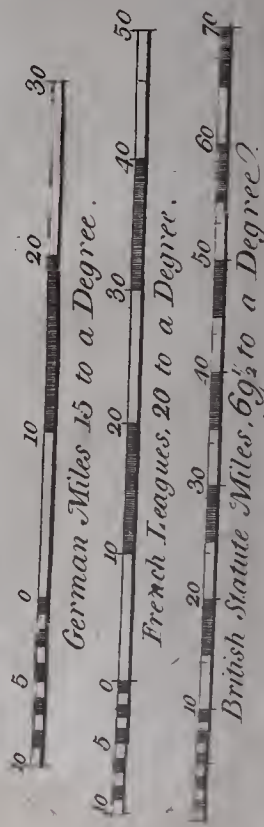 10 5 0 10 20 30
German Miles 15 to a Degree.
10 5 0 10 20 30 40 50
French Leagues, 20 to a Degree.
10 20 30 40 50 60 70
British Statute Miles, 69½ to a Degree.